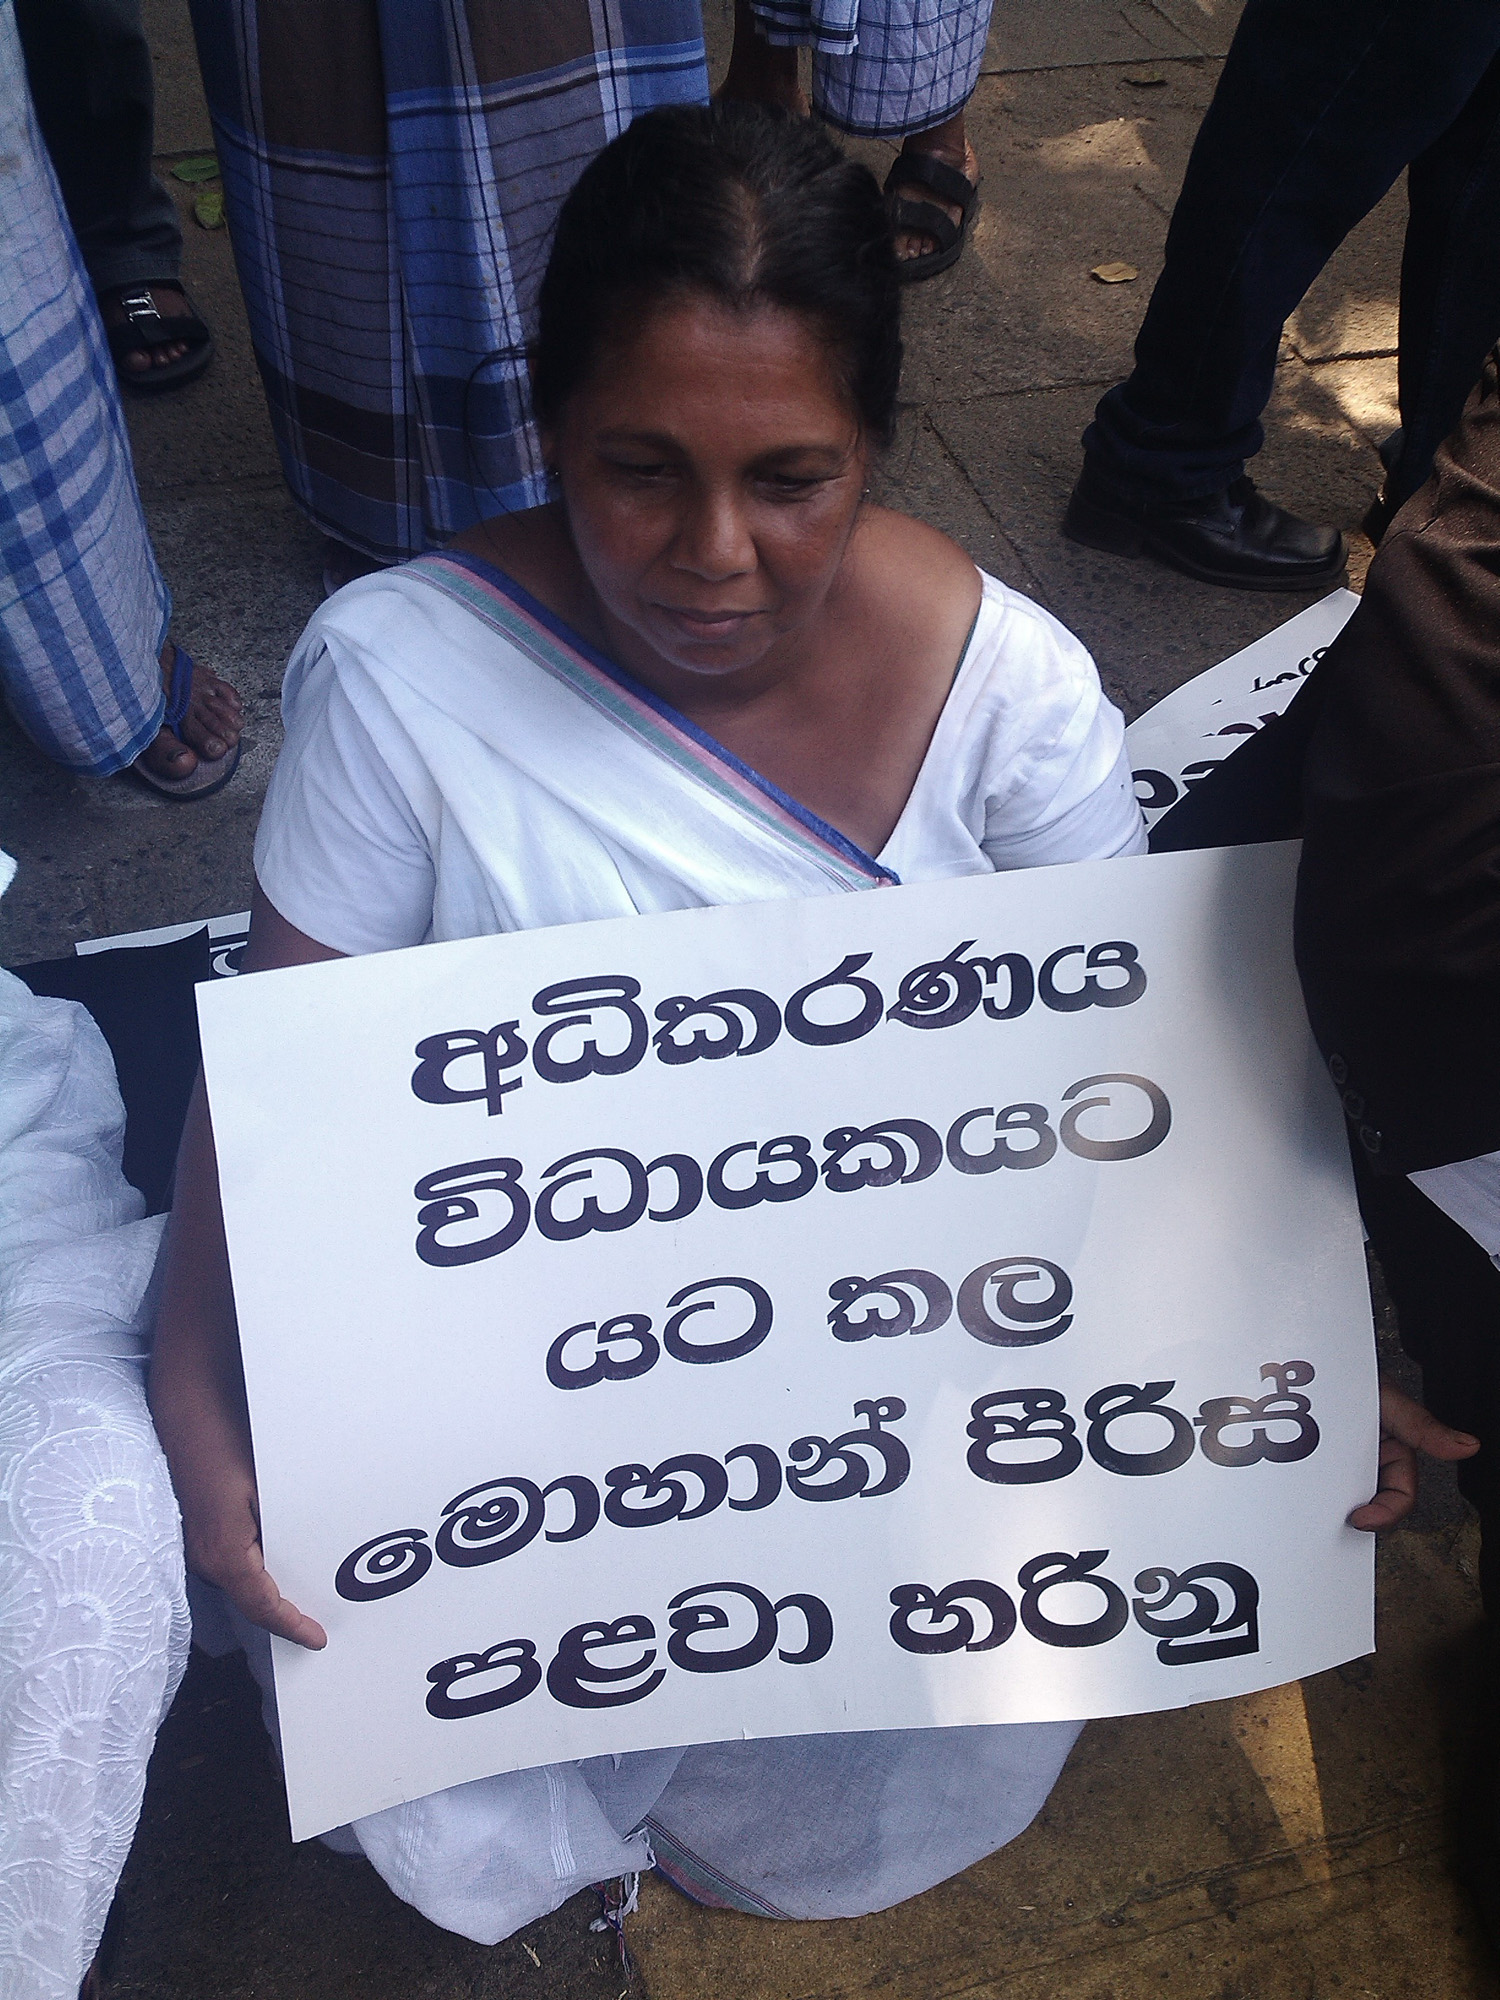 අධිකරණය
විධායකයට
යට කල
මොහාන් පීරිස්
පළවා හරිනු